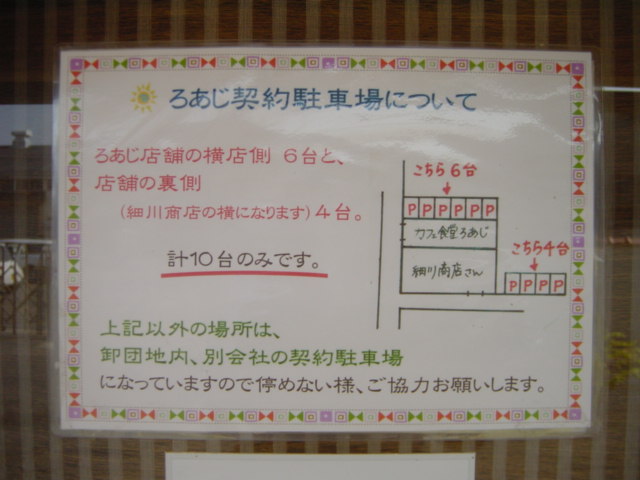 ろあじ契約駐車場について
ろあじ店舗の横店側 6台と、
店舗の裏側
(細川商店の横になります)4台。
計10台のみです。
こちら6台
P P P P P P
カフェ食堂ろあじ
細川商店さん
こちら4台
P P P P
上記以外の場所は、
卸団地内、別会社の契約駐車場
になっていますので停めない様、ご協力お願いします。